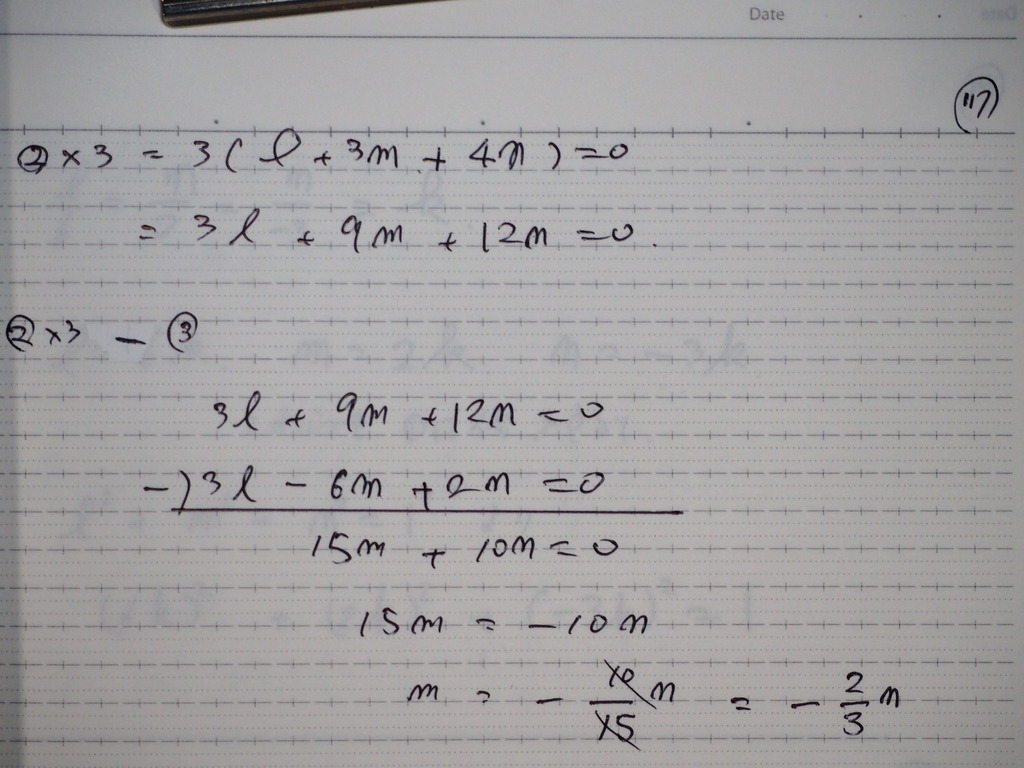 Date
117
② × 3 = 3 ( l + 3m + 4n ) = 0
= 3l + 9m + 12n = 0.
② × 3 - ③
3l + 9m + 12n = 0
-) 3l - 6m + 2n = 0
15m + 10n = 0
15m = -10n
m = - 10/15 n = - 2/3 n